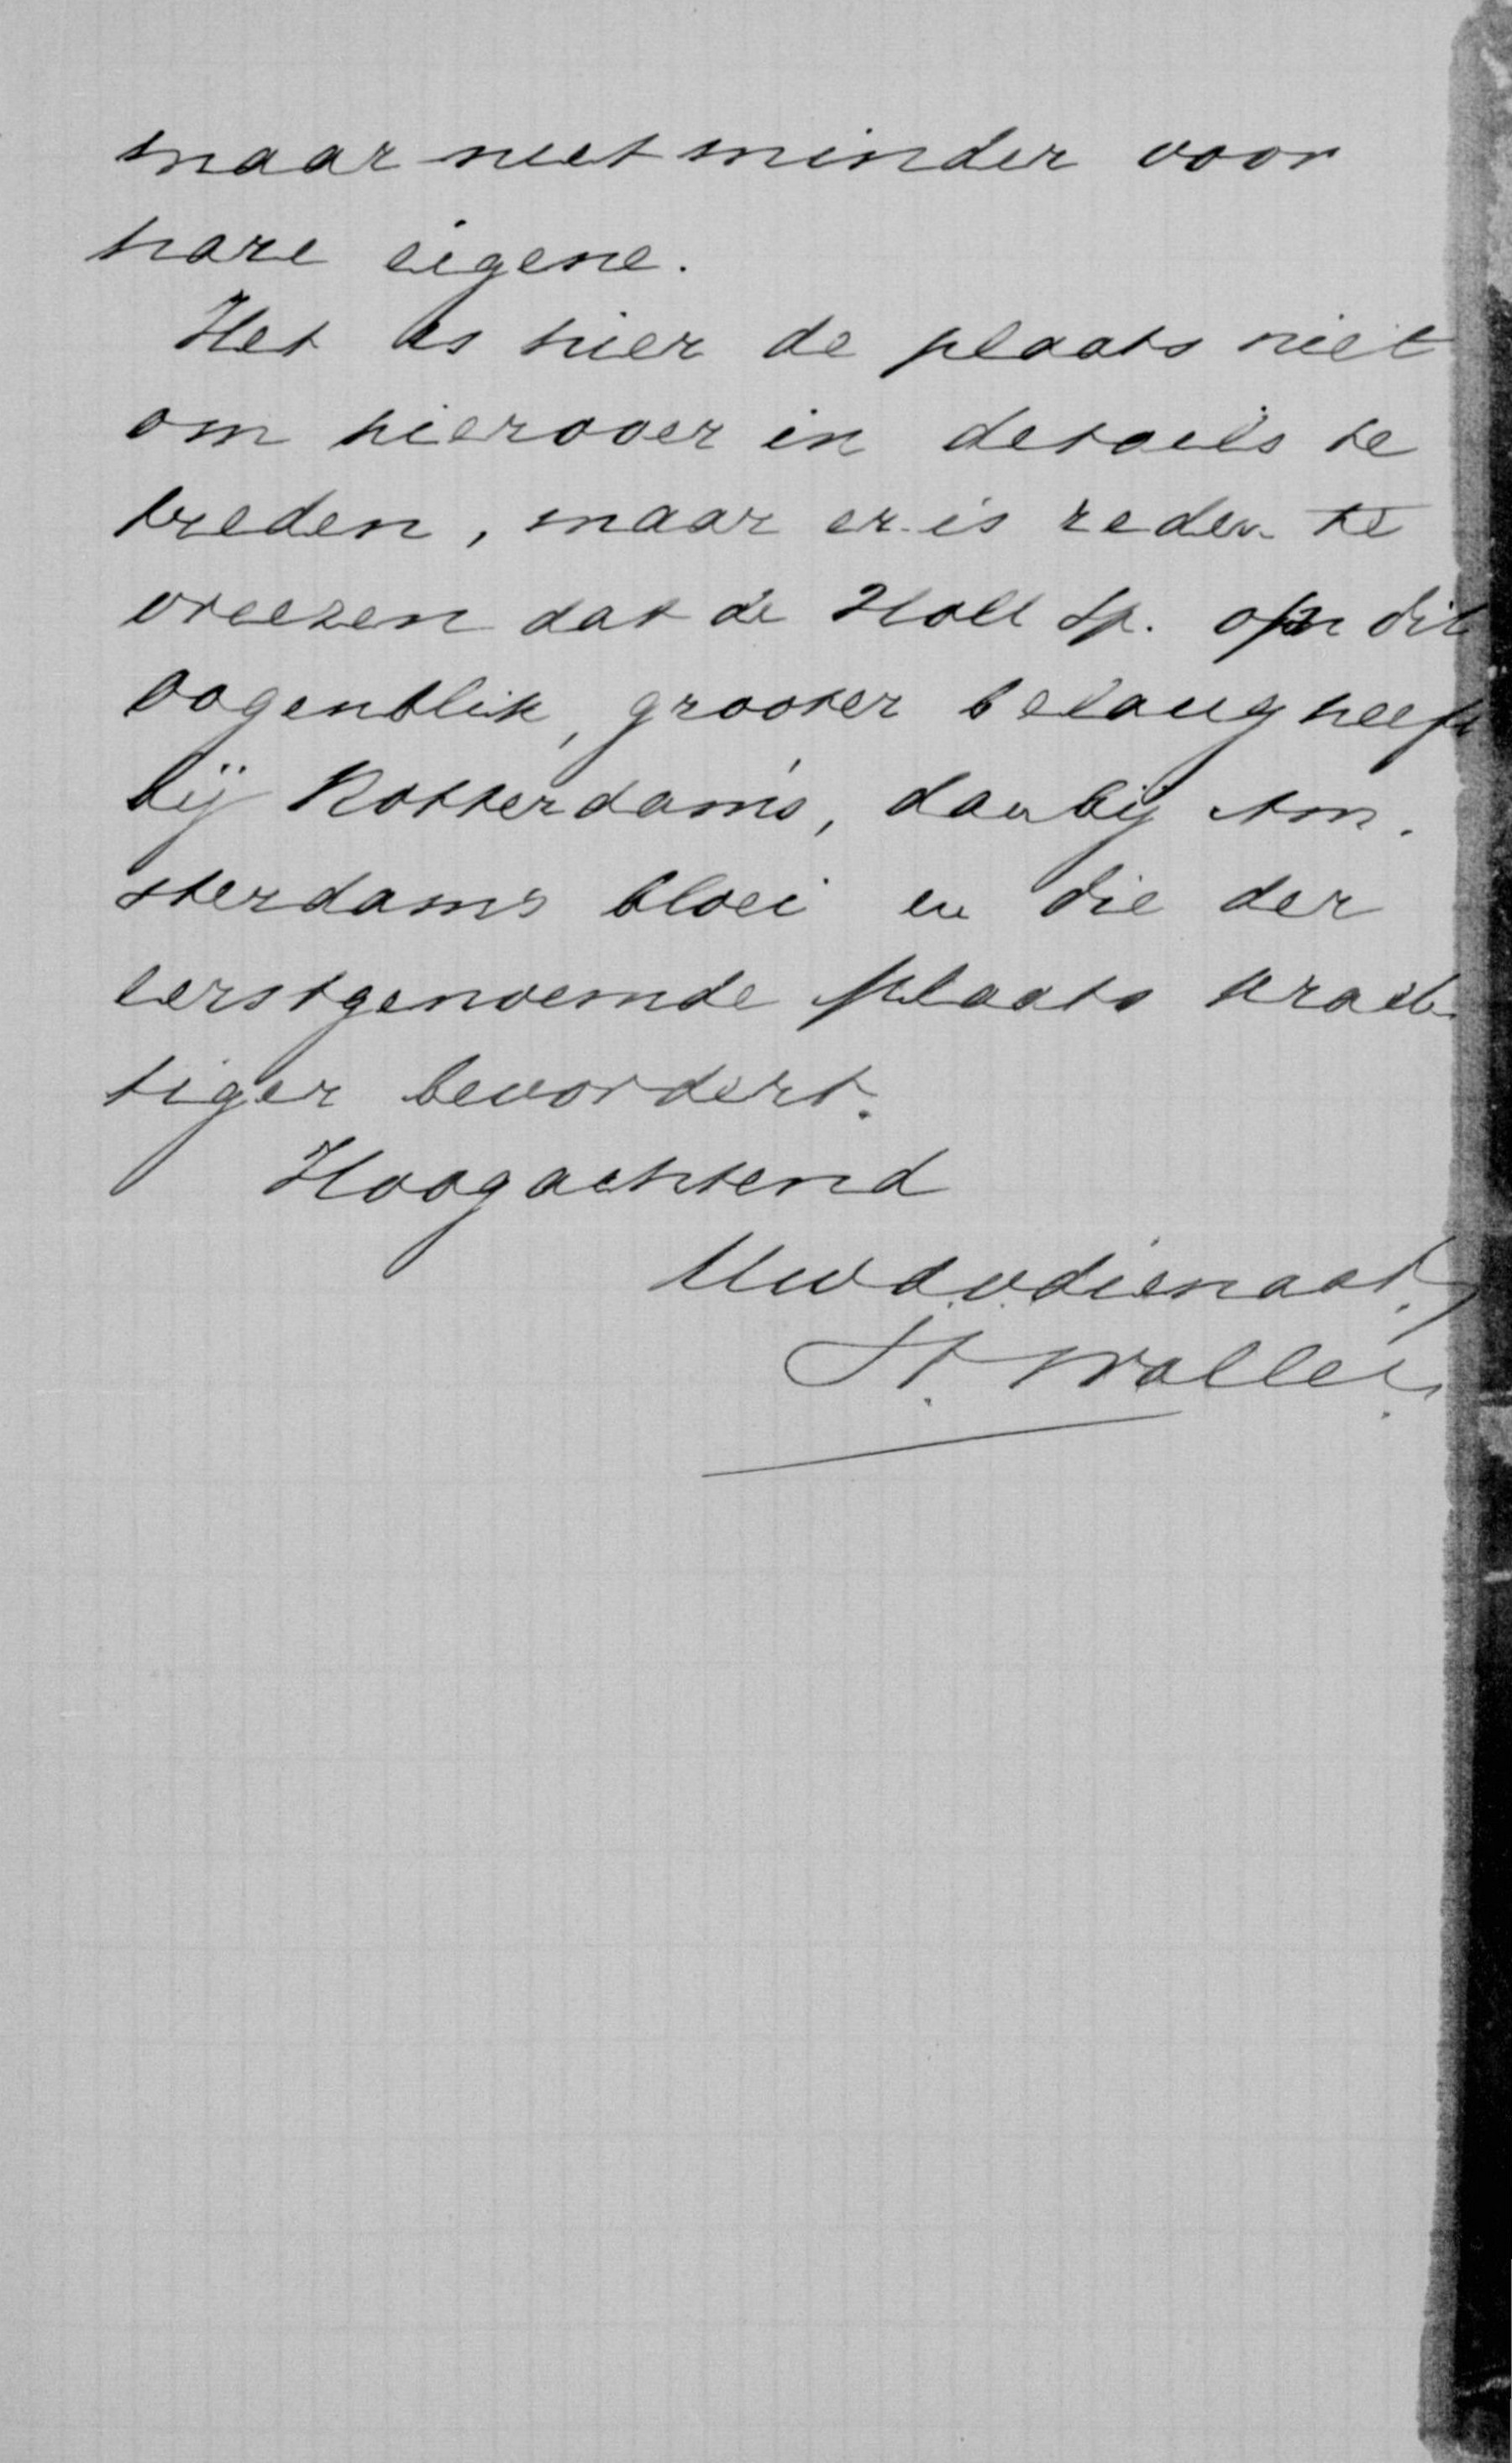 maar niet minder voor
hare eigene.
Het is hier de plaats niet
om hierover in details te
treden, maar er is reden te
vreezen dat de Holl Sp. op dit
oogenblik, grooter belang heeft
bij Rotterdam's, dan bij Am-
sterdams bloei en die der
eerstgenoemde plaats krach-
tiger bevordert.
Hoogachtend
Uwd.v.dienaar,
H. Waller